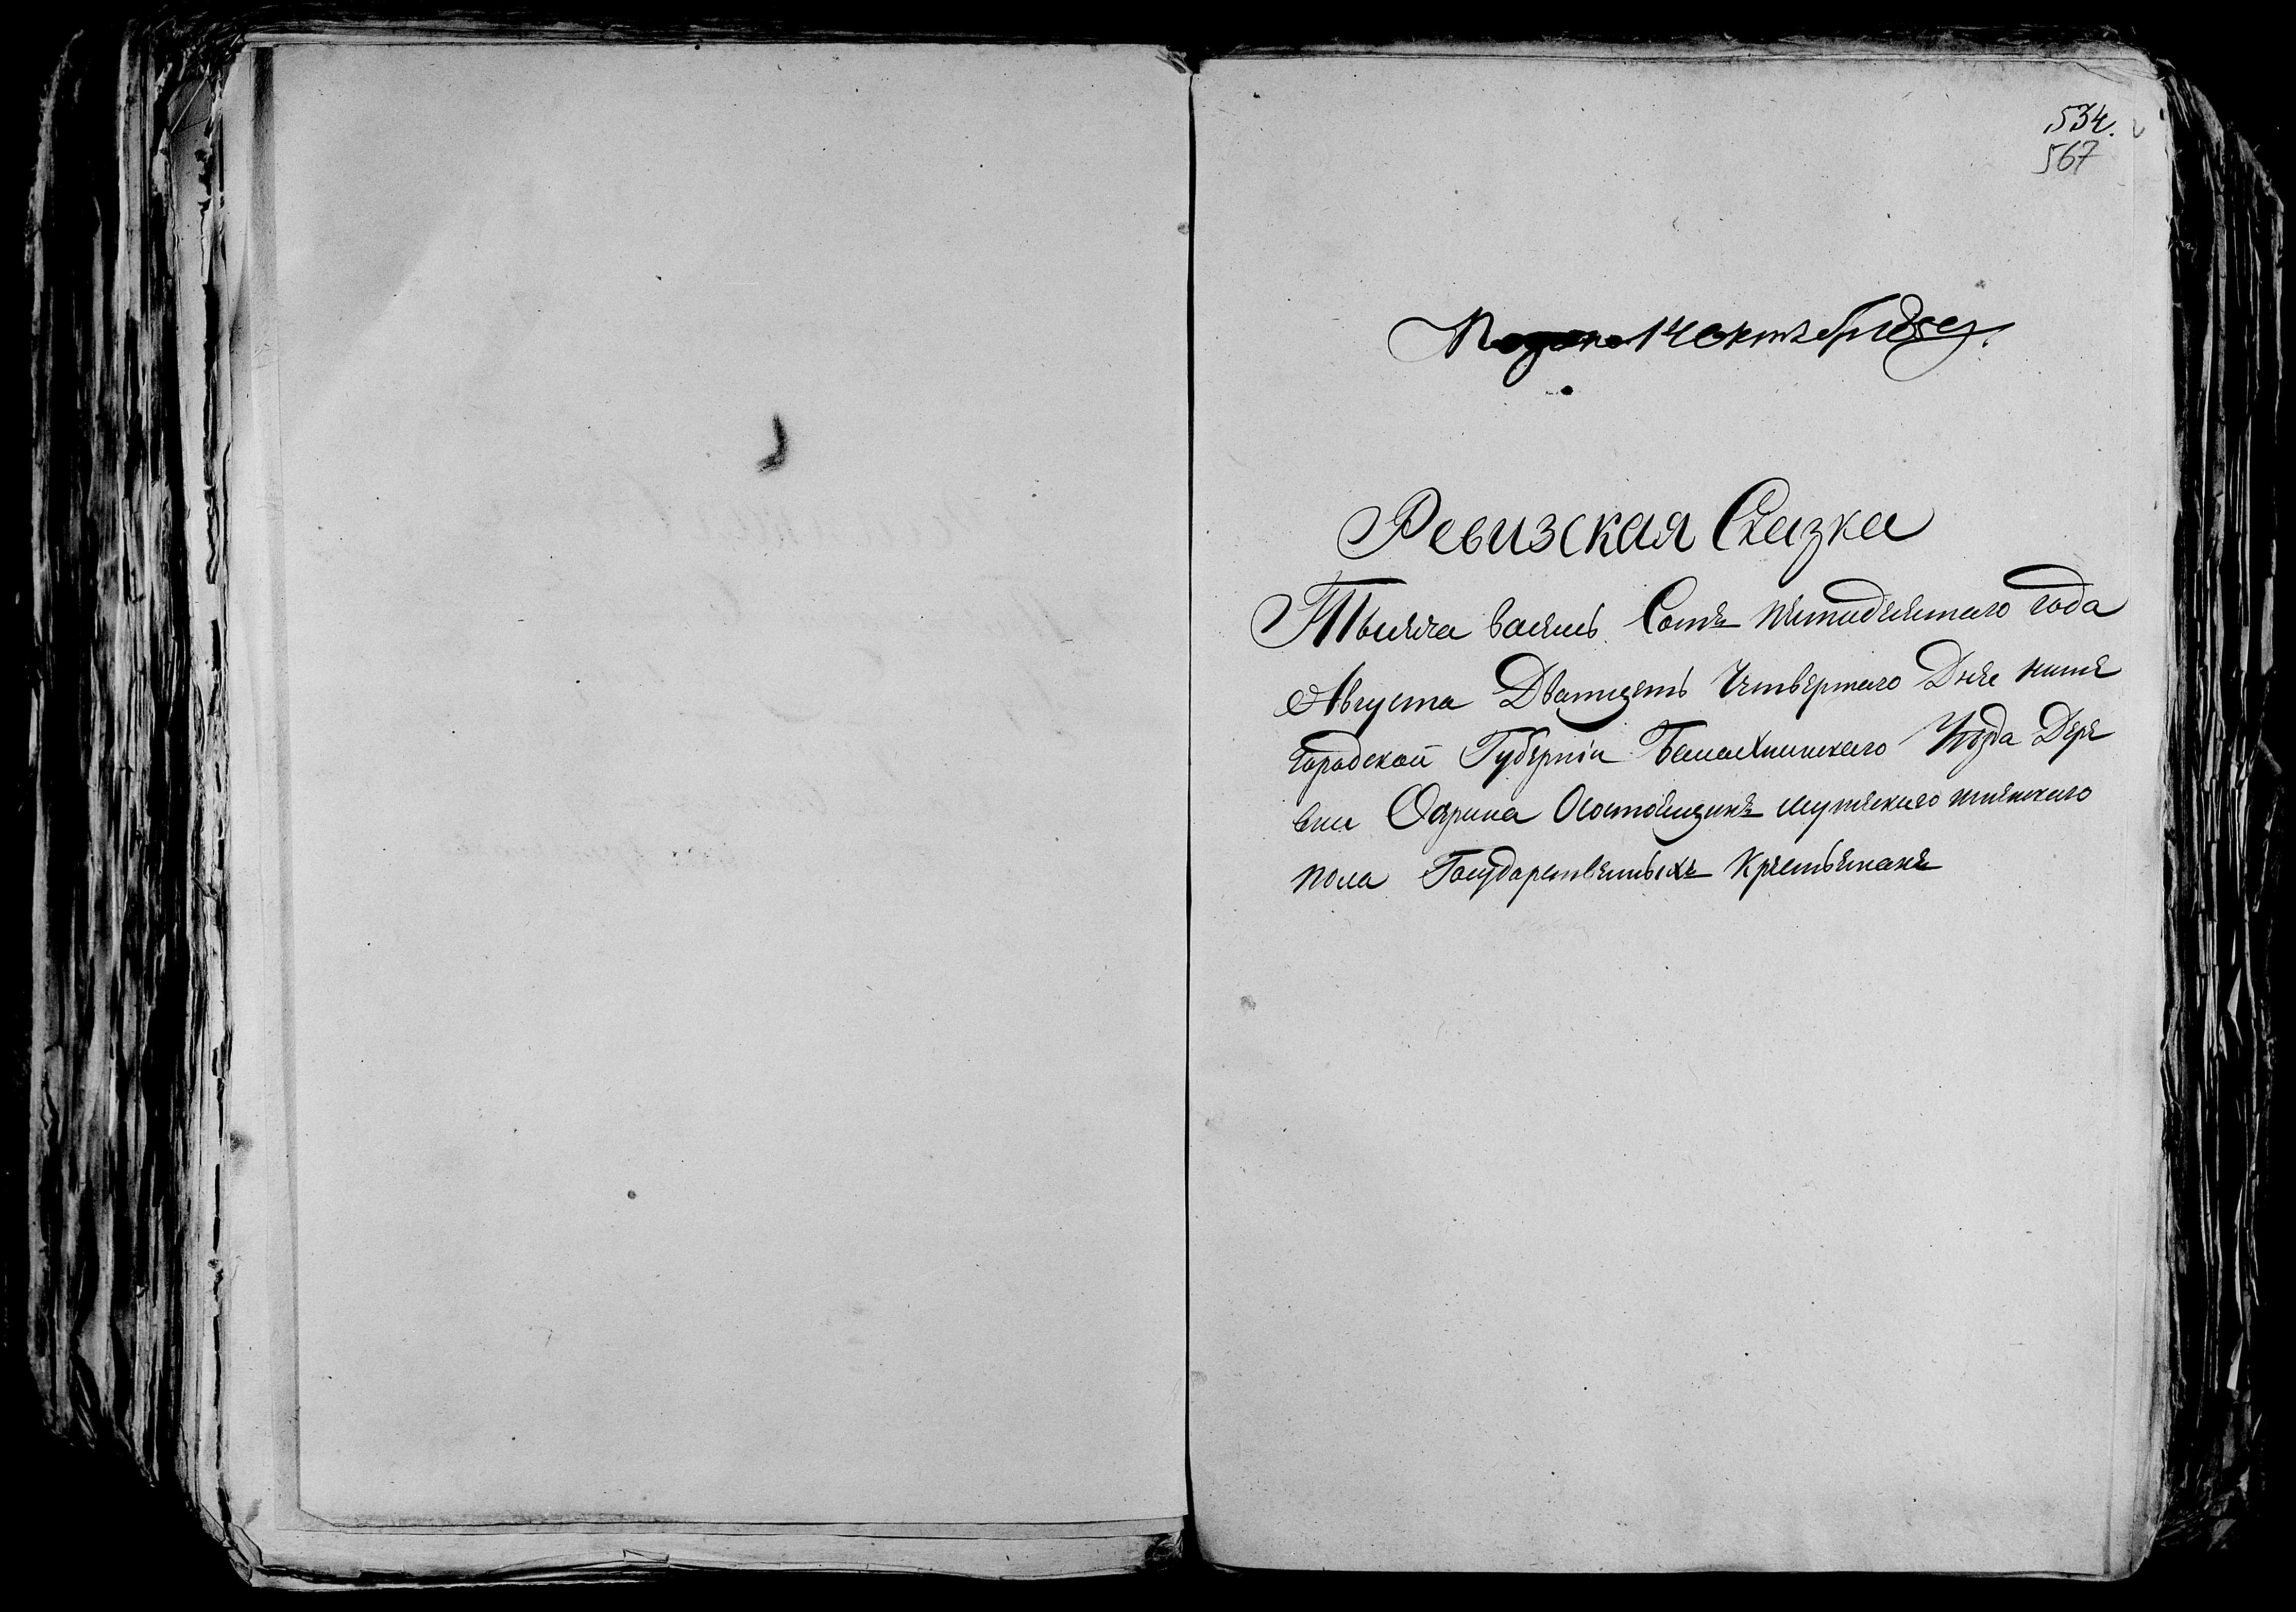 534.
567
Подана 14 октября 1850 г.
Ревизская Сказка
Тысяча восемь Сотъ пятидесятаго года
Августа Дватцать Четвертаго Дня ниже
городской Губерніи Балахнинскаго Уезда Дере
вни Оостоящихъ мужскаго женскаго
пола Государственныхъ Крестьянахъ